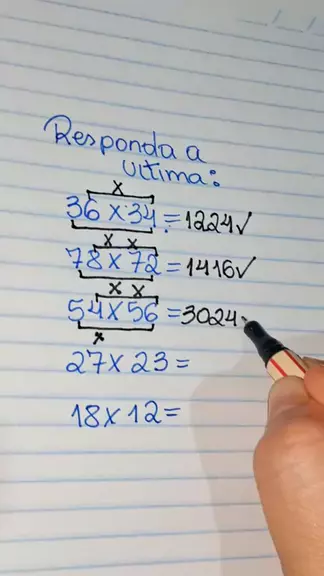 Responda a
ultima:
36 x 34 = 1224✓
78 x 72 = 1416✓
54 x 56 = 3024
27 x 23 =
18 x 12 =